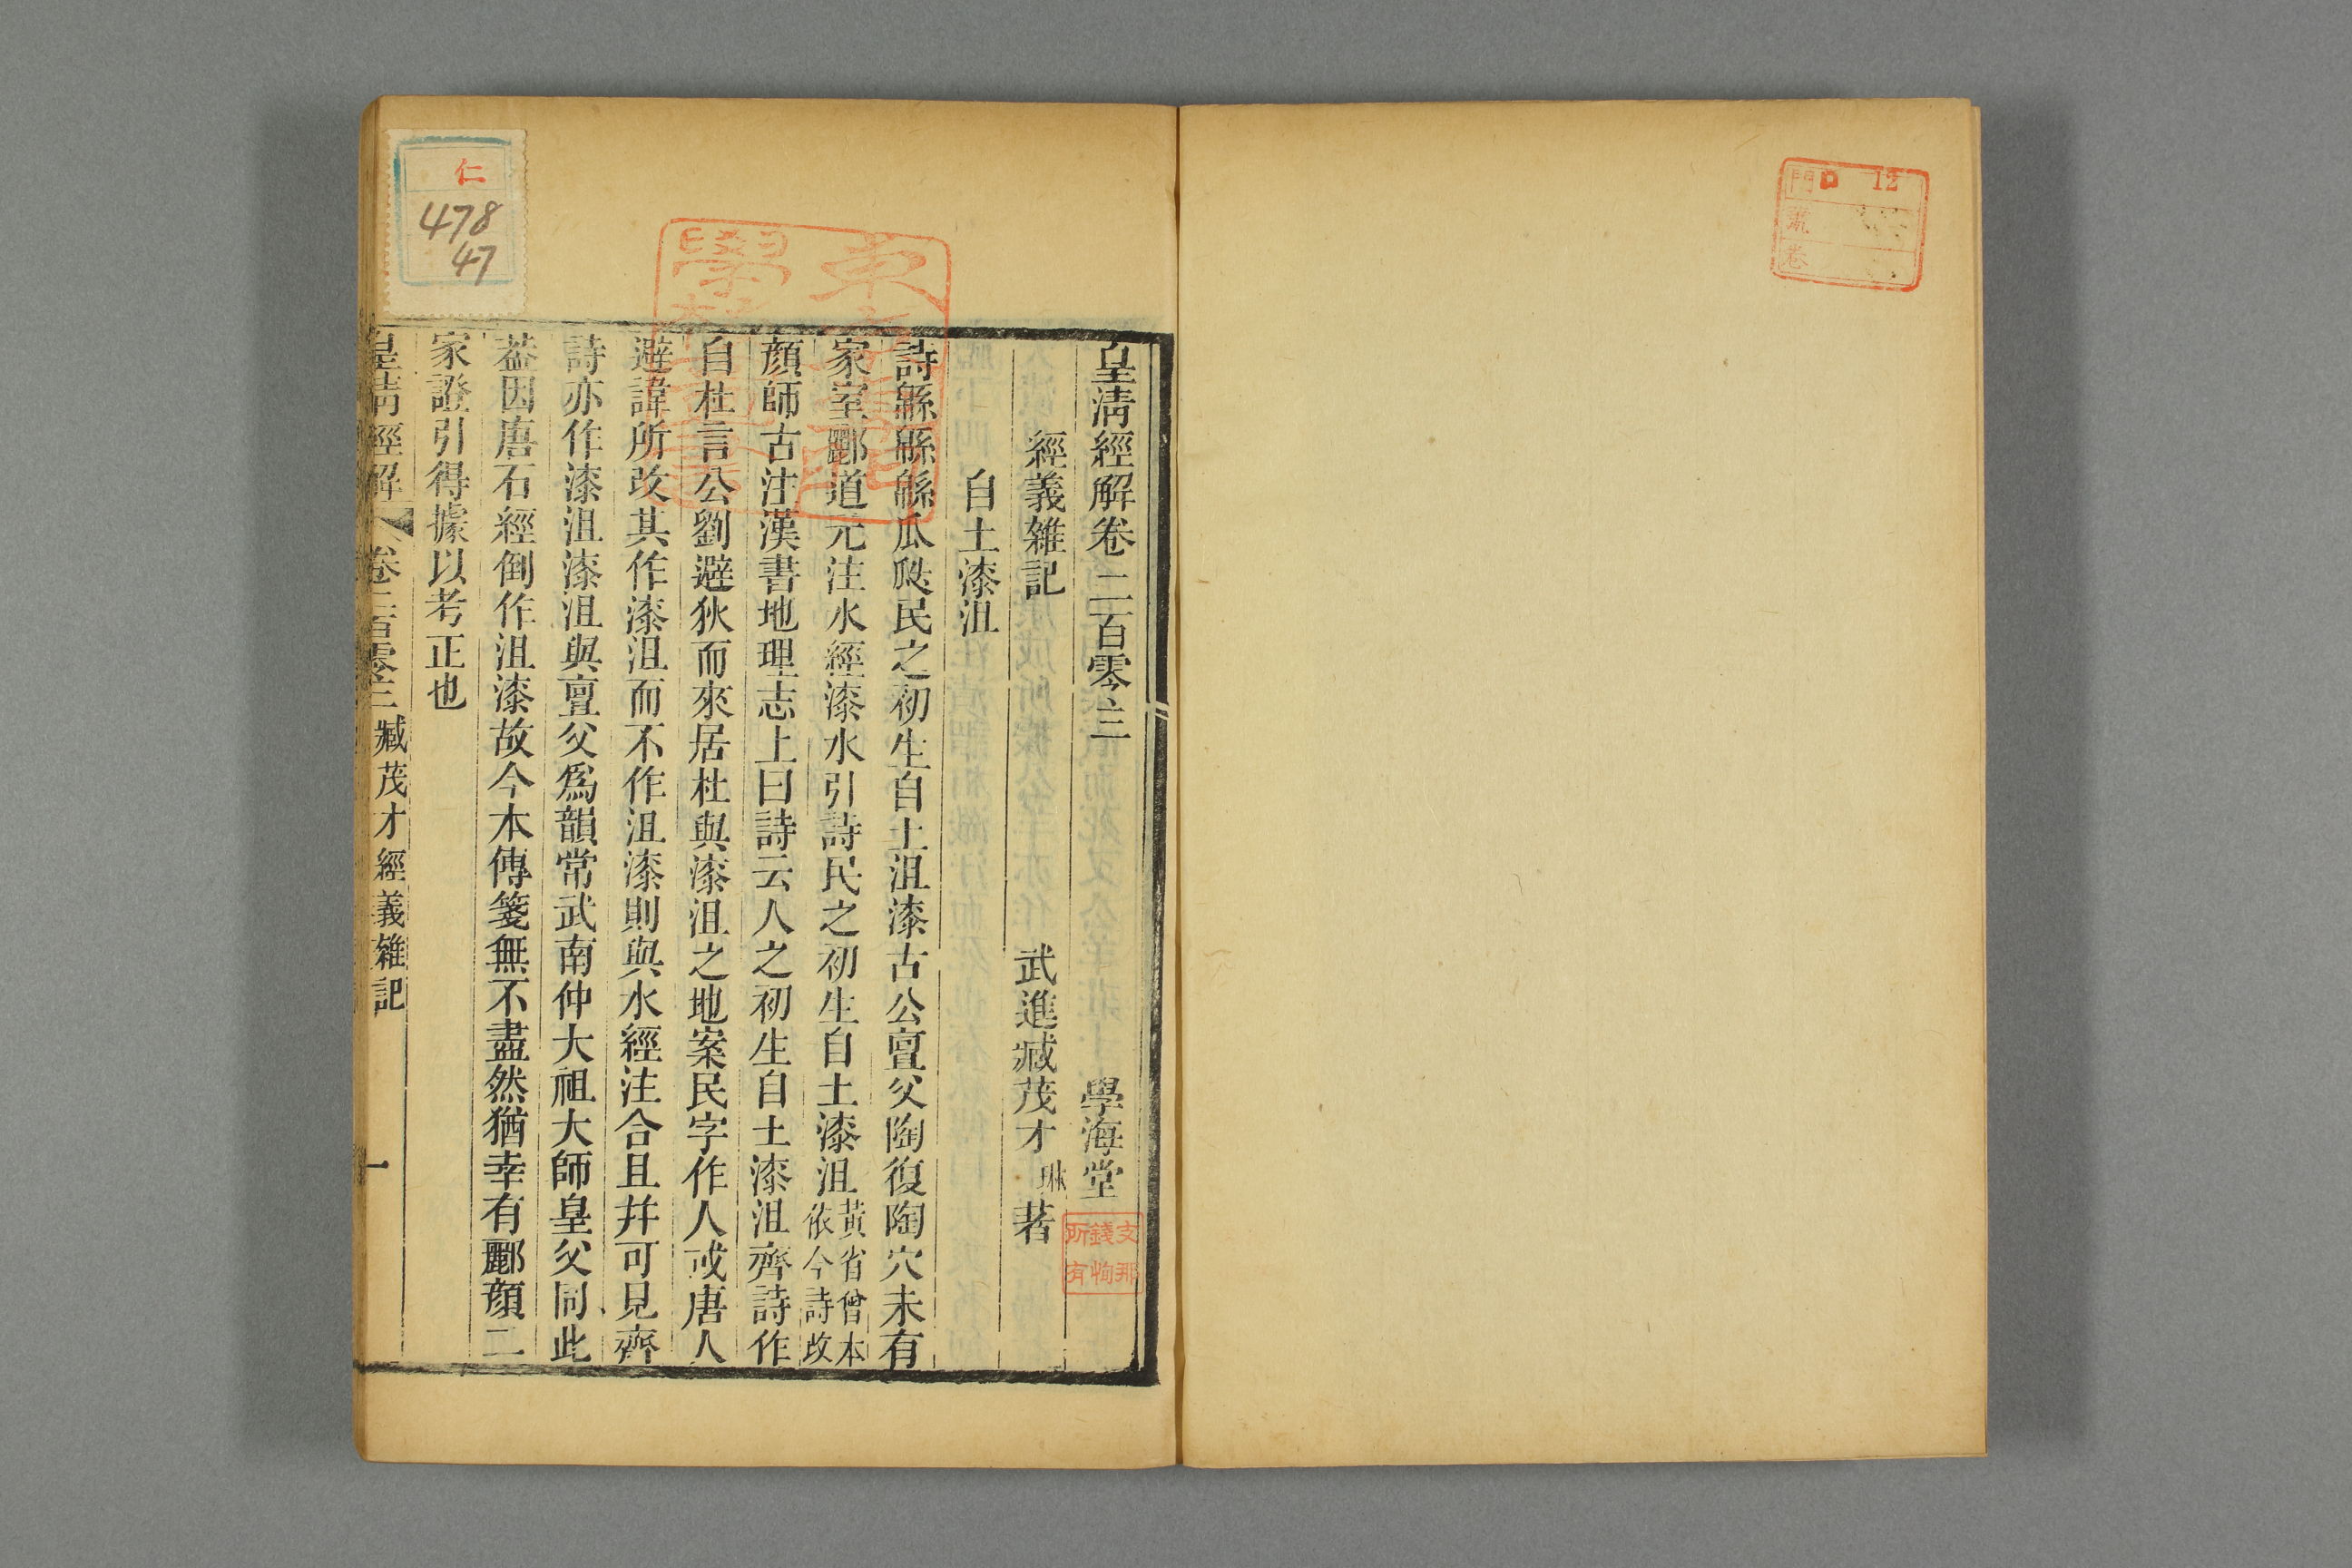 門 口 12
號
卷
皇清經解卷二百零三 學海堂
經義雜記 武進臧茂才琳著
自土漆沮
詩緜緜緜瓜瓞民之初生自土沮漆古公亶父陶復陶穴未有
家室酈道元注水經漆水引詩民之初生自土漆沮黃省曾本依今詩改
顏師古注漢書地理志上曰詩云人之初生自土漆沮齊詩作
自杜言公劉避狄而來居杜與漆沮之地案民字作人或唐人
避諱所改其作漆沮而不作沮漆則與水經注合且幷可見齊
詩亦作漆沮漆沮與亶父爲韻常武南仲大祖大師皇父同此
葢因唐石經倒作沮漆故今本傳箋無不盡然猶幸有酈顏二
家證引得據以考正也
皇淸經解 卷二百零三 臧茂才經義雜記 一
支那
錢恂
所有
仁
478
47